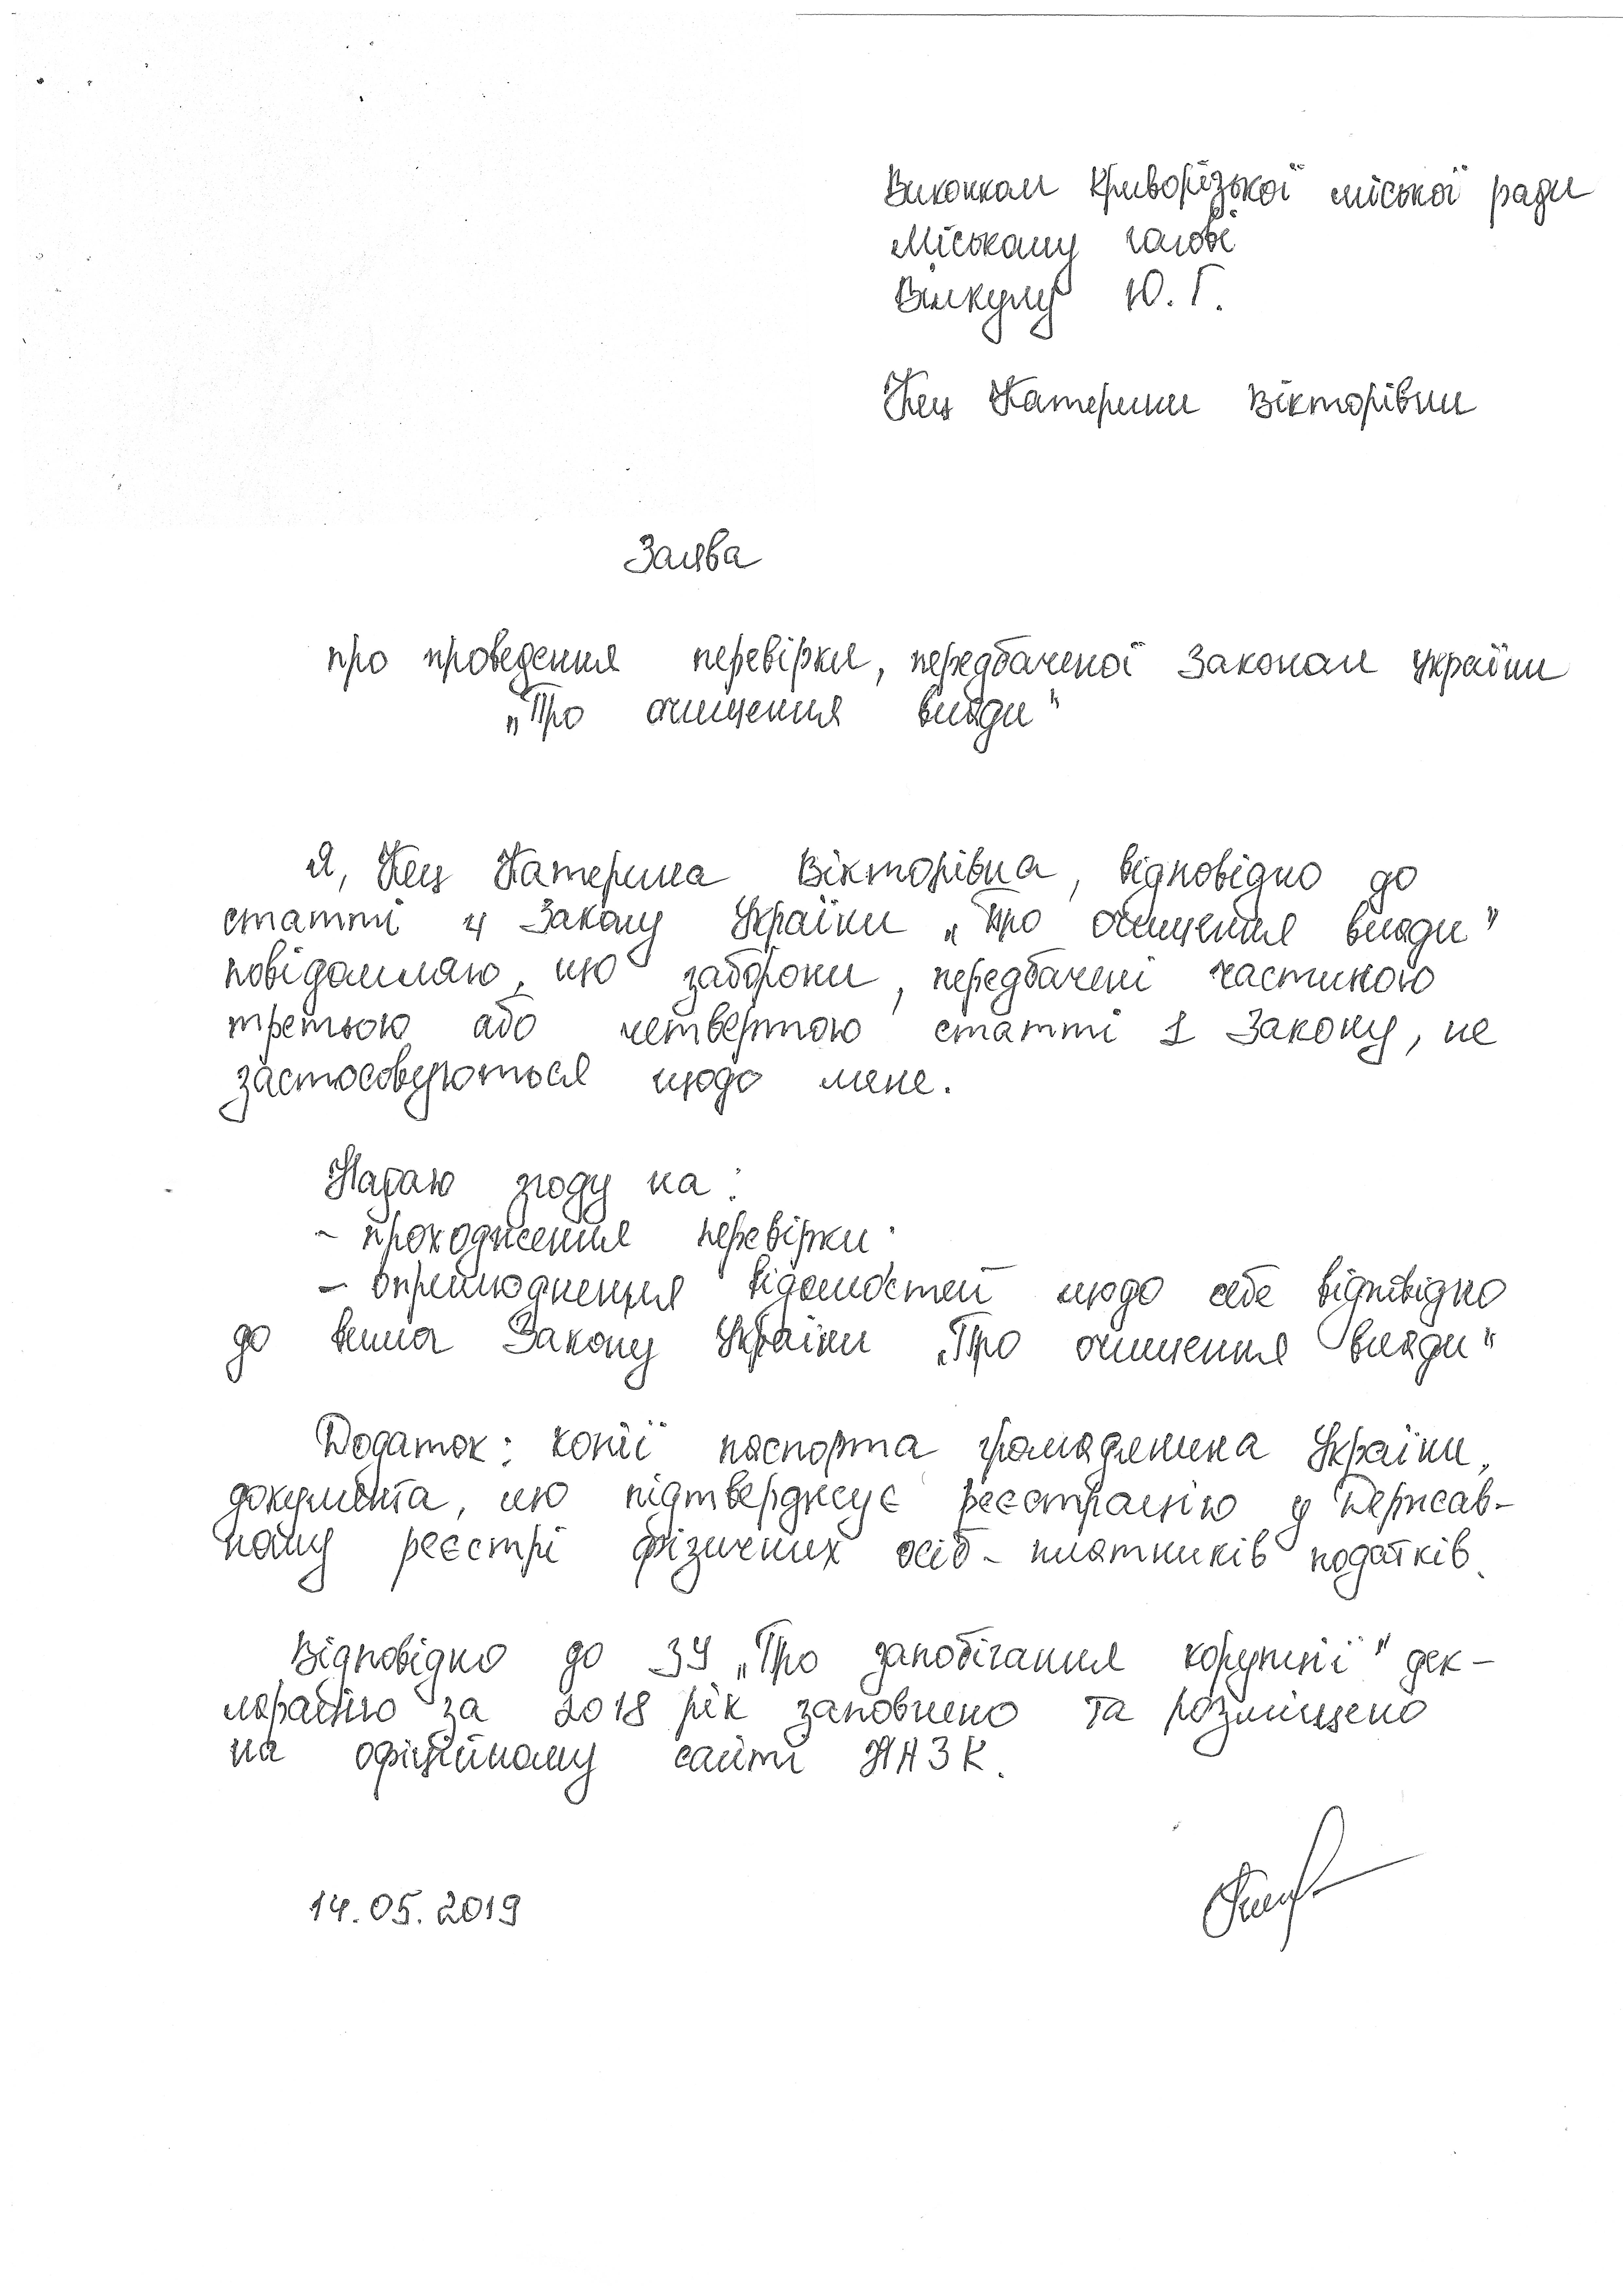 Виконком Криворізької міської ради
Міському голові
Вілкулу Ю.Г.
Кец Катерини Вікторівни
Заява
про проведення перевірки, передбаченої Законом України
„Про очищення влади"
Я, Кец Катерина Вікторівна, відповідно до
статті 4 Закону України „Про очищення влади"
повідомляю, що заборони, передбачені частиною
третьою або четвертою статті 1 Закону, не
застосовуються щодо мене.
Надаю згоду на:
- проходження перевірки;
- оприлюднення відомостей щодо себе відповідно
до вимог Закону України „Про очищення влади"
Додаток: копії паспорта громадянина України,
документа, що підтверджує реєстрацію у Держав-
ному реєстрі фізичних осіб - платників податків.
Відповідно до ЗУ „Про запобігання корупції" дек-
ларацію за 2018 рік заповнено та розміщено
на офіційному сайті НАЗК.
14.05.2019